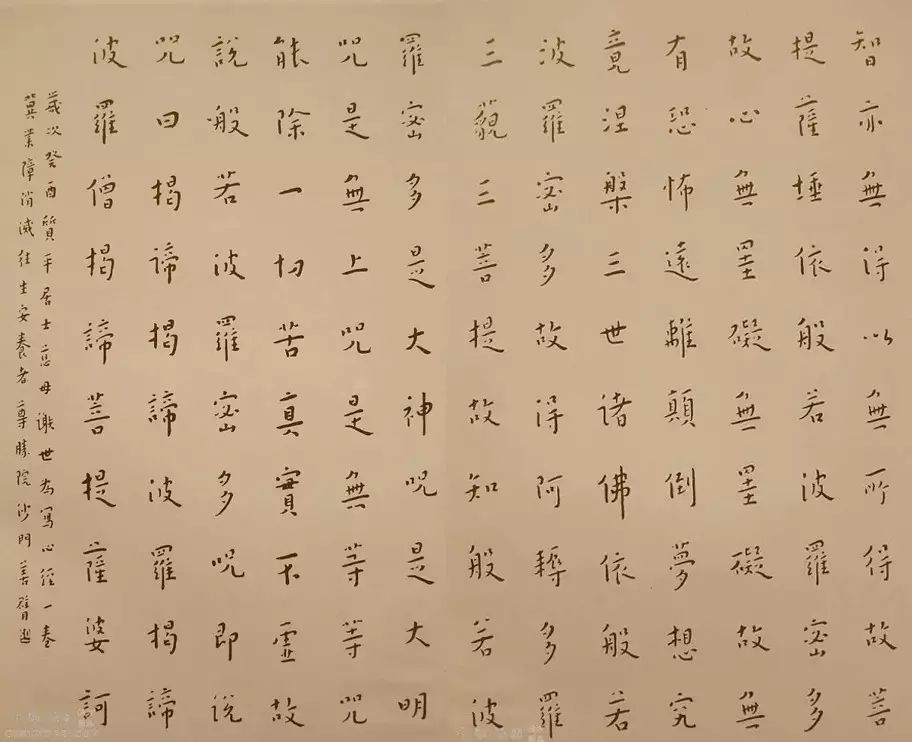 智亦無得以無所得故菩
提薩埵依般若波羅密多
故心無罣礙無罣礙故無
有恐怖遠離顛倒夢想究
竟涅槃三世諸佛依般若
波羅密多故得阿耨多羅
三藐三菩提故知般若波
羅密多是大神咒是大明
咒是無上咒是無等等咒
能除一切苦真實不虛故
說般若波羅密多咒即说
咒曰揭諦揭諦波羅揭諦
波羅僧揭諦菩提薩婆訶
歲次癸酉質平居士慈母謝世為寫心經一卷
冀業障消滅往生安養者尊勝院沙門善臂